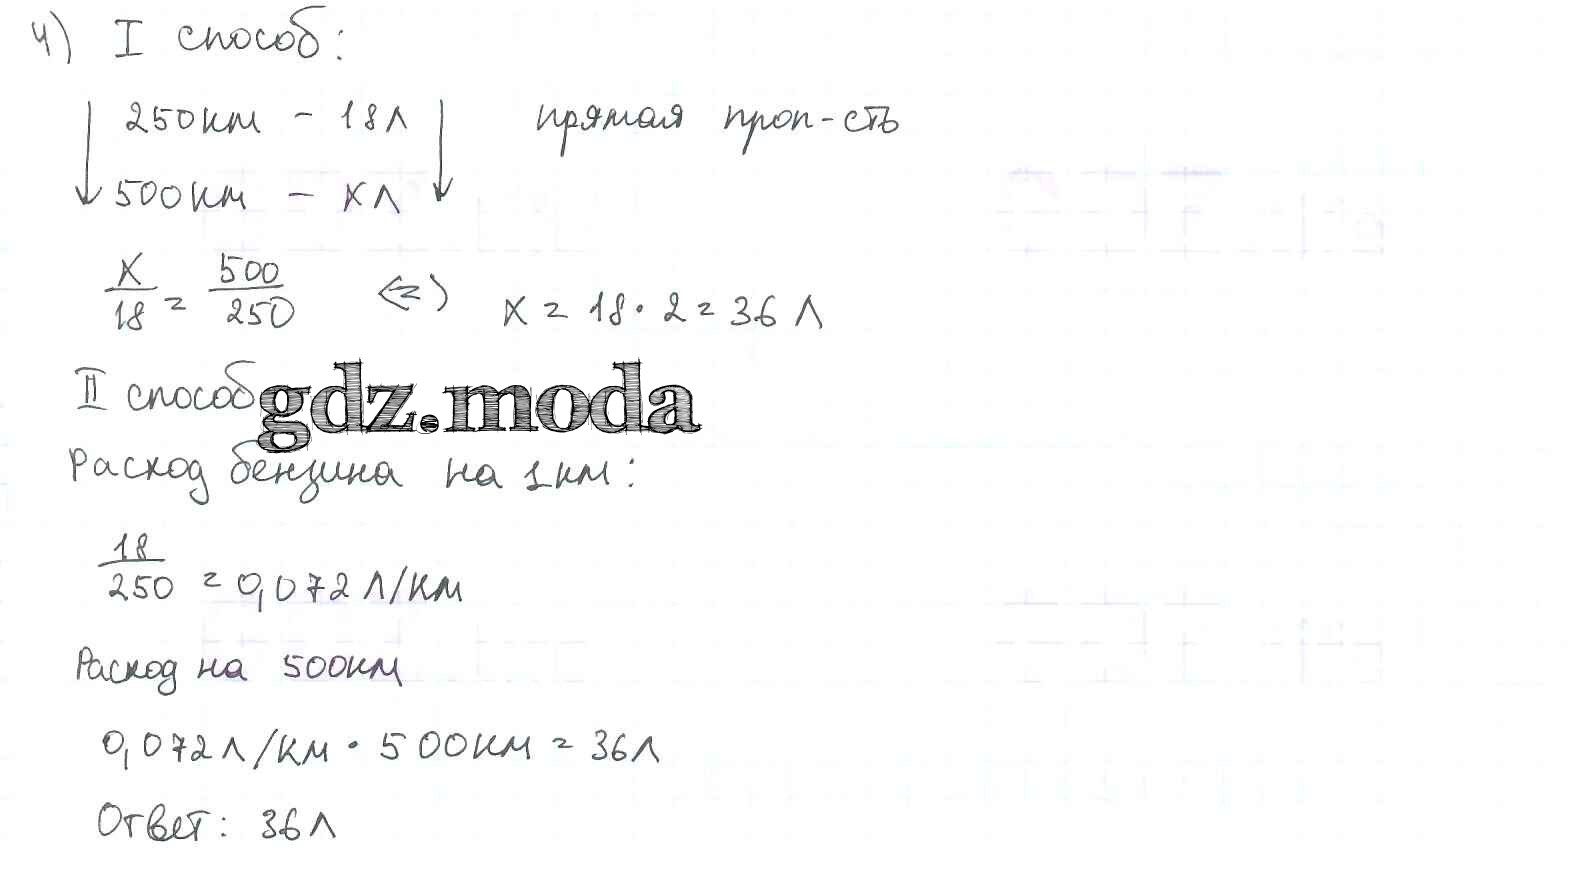 4) I способ:
250км - 18л прямая проп-сть
500км - x л
x/18 = 500/250 <=> x = 18 · 2 = 36 л
II способ
gdz.moda
Расход бензина на 1км:
18/250 = 0,072 л/км
Расход на 500км
0,072 л/км · 500км = 36л
Ответ: 36л